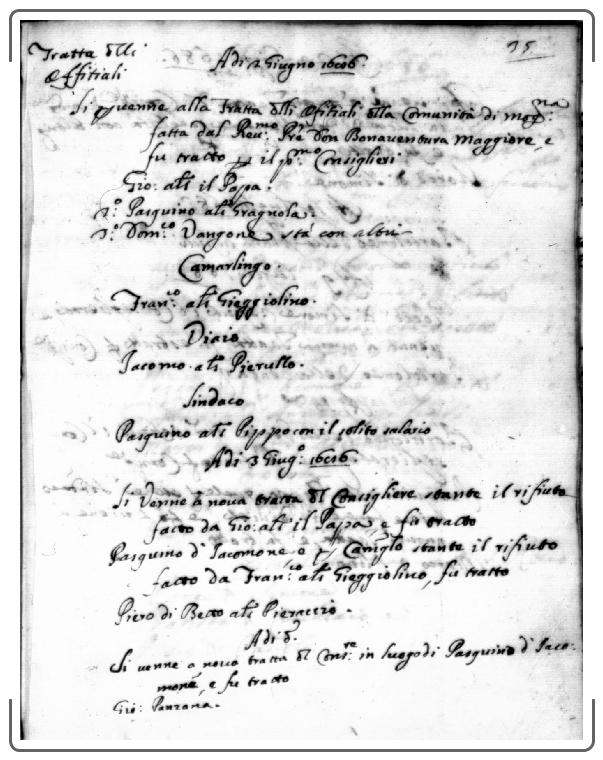 35
Tratta dlli
Offitiali
Adi 2 Giugno 1686.
Si p venne alla Tratta dlli Offitiali dlla Comunità di mog.na
fatta dal Rev.mo Pre Don Bonaventura Maggiore, e
fu tracto p il p.mo Consiglieri
Gio: als il Papa.
2.° Pasquino als Gragnola.
3.° Dom.co Vangone stà con altri
Camarlingo.
Fran.co als Gieggiolino.
Viaio
Iacomo als Pierullo.
Sindaco
Pasquino als Pippo con il solito salario
Adi 3 Giug.° 1686.
Si Venne à nova tracta dl Consigliere stante il rifiuto
facto da Gio: als il Papa, e fù tracto
Pasquino d' Iacomone, e p Camglo stante il rifiuto
facto da Fran.co als Gieggiolino, fù tratto
Piero di Becto als Pieraccio.
Adi d.°
Si venne a nova tratta dl Cons.re in luogo di Pasquino d' Iaco:
mone, e fu tracto
Gio: Panzana.